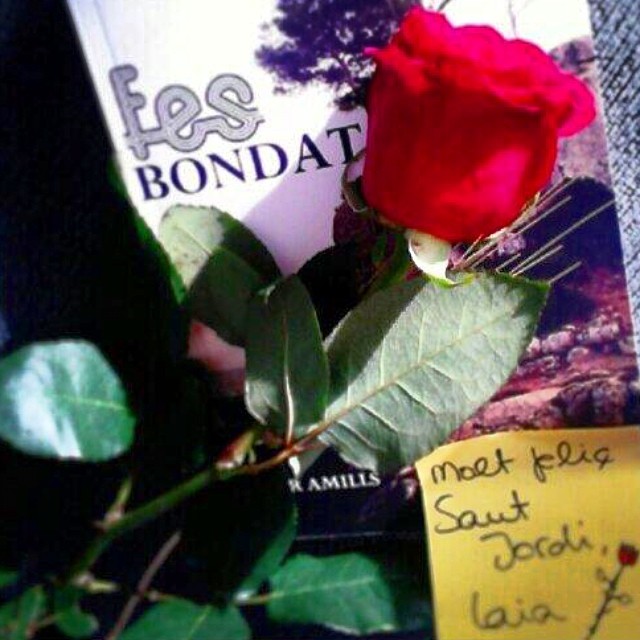 Fes
BONDAT
R AMILLS
Molt feliç
Saut
Jordi,
laia